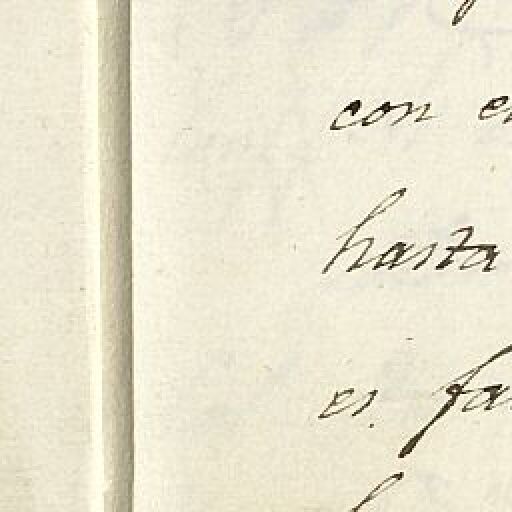 con
hasta
es fa